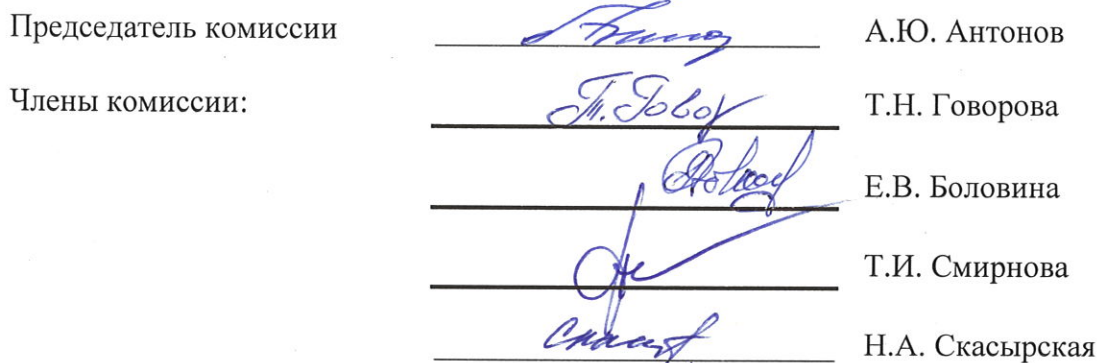 Председатель комиссии А.Ю. Антонов
Члены комиссии: Т. Говор Т.Н. Говорова
Е.В. Боловина
Т.И. Смирнова
Н.А. Скасырская